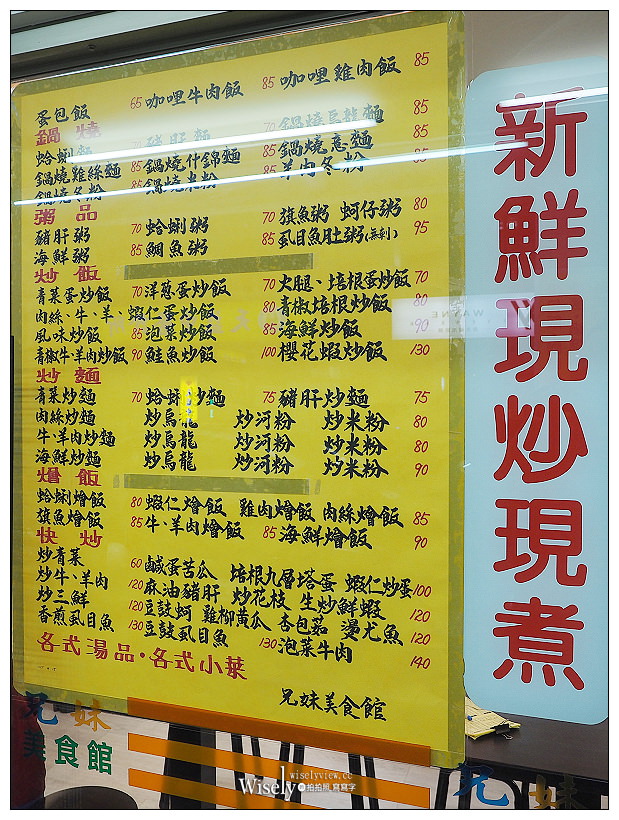 蛋包飯 65 咖哩牛肉飯 85 咖哩雞肉飯 85
鍋燒
蛤蜊麵 豬肝麵 70 鍋燒烏龍麵 85
鍋燒雞絲麵 85 鍋燒什錦麵 85 鍋燒意麵 85
鍋燒冬粉 85 鍋燒米粉 85 羊肉冬粉 85
粥品
豬肝粥 70 蛤蜊粥 70 旗魚粥 蚵仔粥 80
海鮮粥 85 鯛魚粥 85 虱目魚肚粥(無刺) 95
炒飯
青菜蛋炒飯 70 洋蔥蛋炒飯 70 火腿、培根蛋炒飯 70
肉絲、牛、羊、蝦仁蛋炒飯 80 青椒培根炒飯 80
風味炒飯 85 泡菜炒飯 85 海鮮炒飯 90
青椒牛、羊肉炒飯 90 鮭魚炒飯 100 櫻花蝦炒飯 130
炒麵
青菜炒麵 70 蛤蜊炒麵 75 豬肝炒麵 75
肉絲炒麵 炒烏龍 炒河粉 炒米粉 80
牛、羊肉炒麵 炒烏龍 炒河粉 炒米粉 80
海鮮炒麵 炒烏龍 炒河粉 炒米粉 90
燴飯
蛤蜊燴飯 80 蝦仁燴飯 雞肉燴飯 肉絲燴飯 85
旗魚燴飯 85 牛、羊肉燴飯 85 海鮮燴飯 90
快炒
炒青菜 60 鹹蛋苦瓜 培根九層塔蛋 蝦仁炒蛋 100
炒牛、羊肉 120 麻油豬肝 炒花枝 生炒鮮蝦 120
炒三鮮 120 豆鼓蚵 雞柳黃瓜 杏包菇 燙尤魚 120
香煎虱目魚 130 豆鼓虱目魚 130 泡菜牛肉 140
各式湯品・各式小菜
兄妹美食館
新鮮現炒現煮
兄妹
美食館
兄妹
wiselyview.cc
Wisely 拍拍照.寫寫字